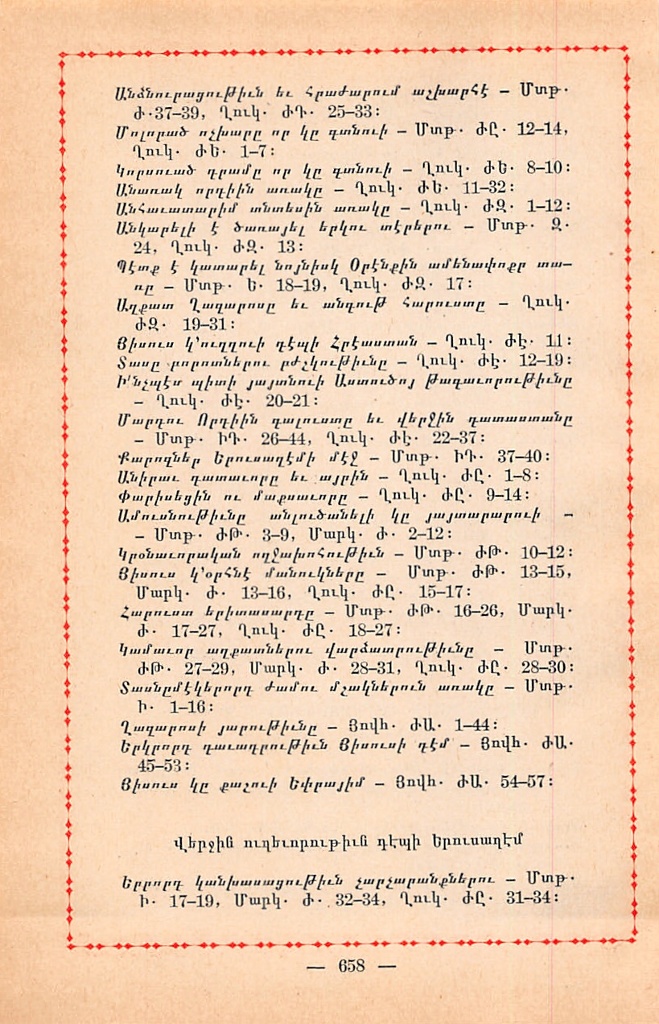 Անձնուրացութիւն եւ Հրաժարում աշխարհէ – Մտթ.
Ժ.37–39, Ղուկ. ԺԴ. 25–33:
Մոլորած ոչխարը որ կը գտնուի – Մտթ. ԺԸ. 12–14,
Ղուկ. ԺԵ. 1–7:
Կորսուած դրամը որ կը գտնուի – Ղուկ. ԺԵ. 8–10:
Անառակ որդիին առակը – Ղուկ. ԺԵ. 11–32:
Անհաւատարիմ տնտեսին առակը – Ղուկ. ԺԶ. 1–12:
Անկարելի է ծառայել երկու տէրերու – Մտթ. Զ.
24, Ղուկ. ԺԶ. 13:
Պէտք է կատարել նոյնիսկ Օրէնքին ամենափոքր տա–
ռը – Մտթ. Ե. 18–19, Ղուկ. ԺԶ. 17:
Աղքատ Ղազարոսը եւ անգութ հարուստը – Ղուկ.
ԺԶ. 19–31:
Յիսուս կ'ուղղուի դէպի Հրէաստան – Ղուկ. ԺԷ. 11:
Տասը բորոտներու բժշկութիւնը – Ղուկ. ԺԷ. 12–19:
Ի՞նչպէս պիտի յայտնուի Աստուծոյ Թագաւորութիւնը
– Ղուկ. ԺԷ. 20–21:
Մարդու Որդիին գալուստը եւ վերջին դատաստանը
– Մտթ. ԻԴ. 26–44, Ղուկ. ԺԷ. 22–37:
Քարոզներ Երուսաղէմի մէջ – Մտթ. ԻԴ. 37–40:
Անիրաւ դատաւորը եւ այրին – Ղուկ. ԺԸ. 1–8:
Փարիսեցին ու մաքսաւորը – Ղուկ. ԺԸ. 9–14:
Ամուսնութիւնը անլուծանելի կը յայտարարուի –
– Մտթ. ԺԹ. 3–9, Մարկ. Ժ. 2–12:
Կրօնաւորական ողջախոհութիւն – Մտթ. ԺԹ. 10–12:
Յիսուս կ'օրհնէ մանուկները – Մտթ. ԺԹ. 13–15,
Մարկ. Ժ. 13–16, Ղուկ. ԺԸ. 15–17:
Հարուստ երիտասարդը – Մտթ. ԺԹ. 16–26, Մարկ.
Ժ. 17–27, Ղուկ. ԺԸ. 18–27:
Կամաւոր աղքատներու վարձատրութիւնը – Մտթ.
ԺԹ. 27–29, Մարկ. Ժ. 28–31, Ղուկ. ԺԸ. 28–30:
Տասնըմէկերորդ ժամու մշակներուն առակը – Մտթ.
Ի. 1–16:
Ղազարոսի յարութիւնը – Յովհ. ԺԱ. 1–44:
Երկրորդ դաւադրութիւն Յիսուսի դէմ – Յովհ. ԺԱ.
45–53:
Յիսուս կը քաշուի Եփրայիմ – Յովհ. ԺԱ. 54–57:
Վերջին ուղեւորութիւն դէպի Երուսաղէմ
Երրորդ կանխասացութիւն չարչարանքներու – Մտթ.
Ի. 17–19, Մարկ. Ժ. 32–34, Ղուկ. ԺԸ. 31–34:
— 658 —